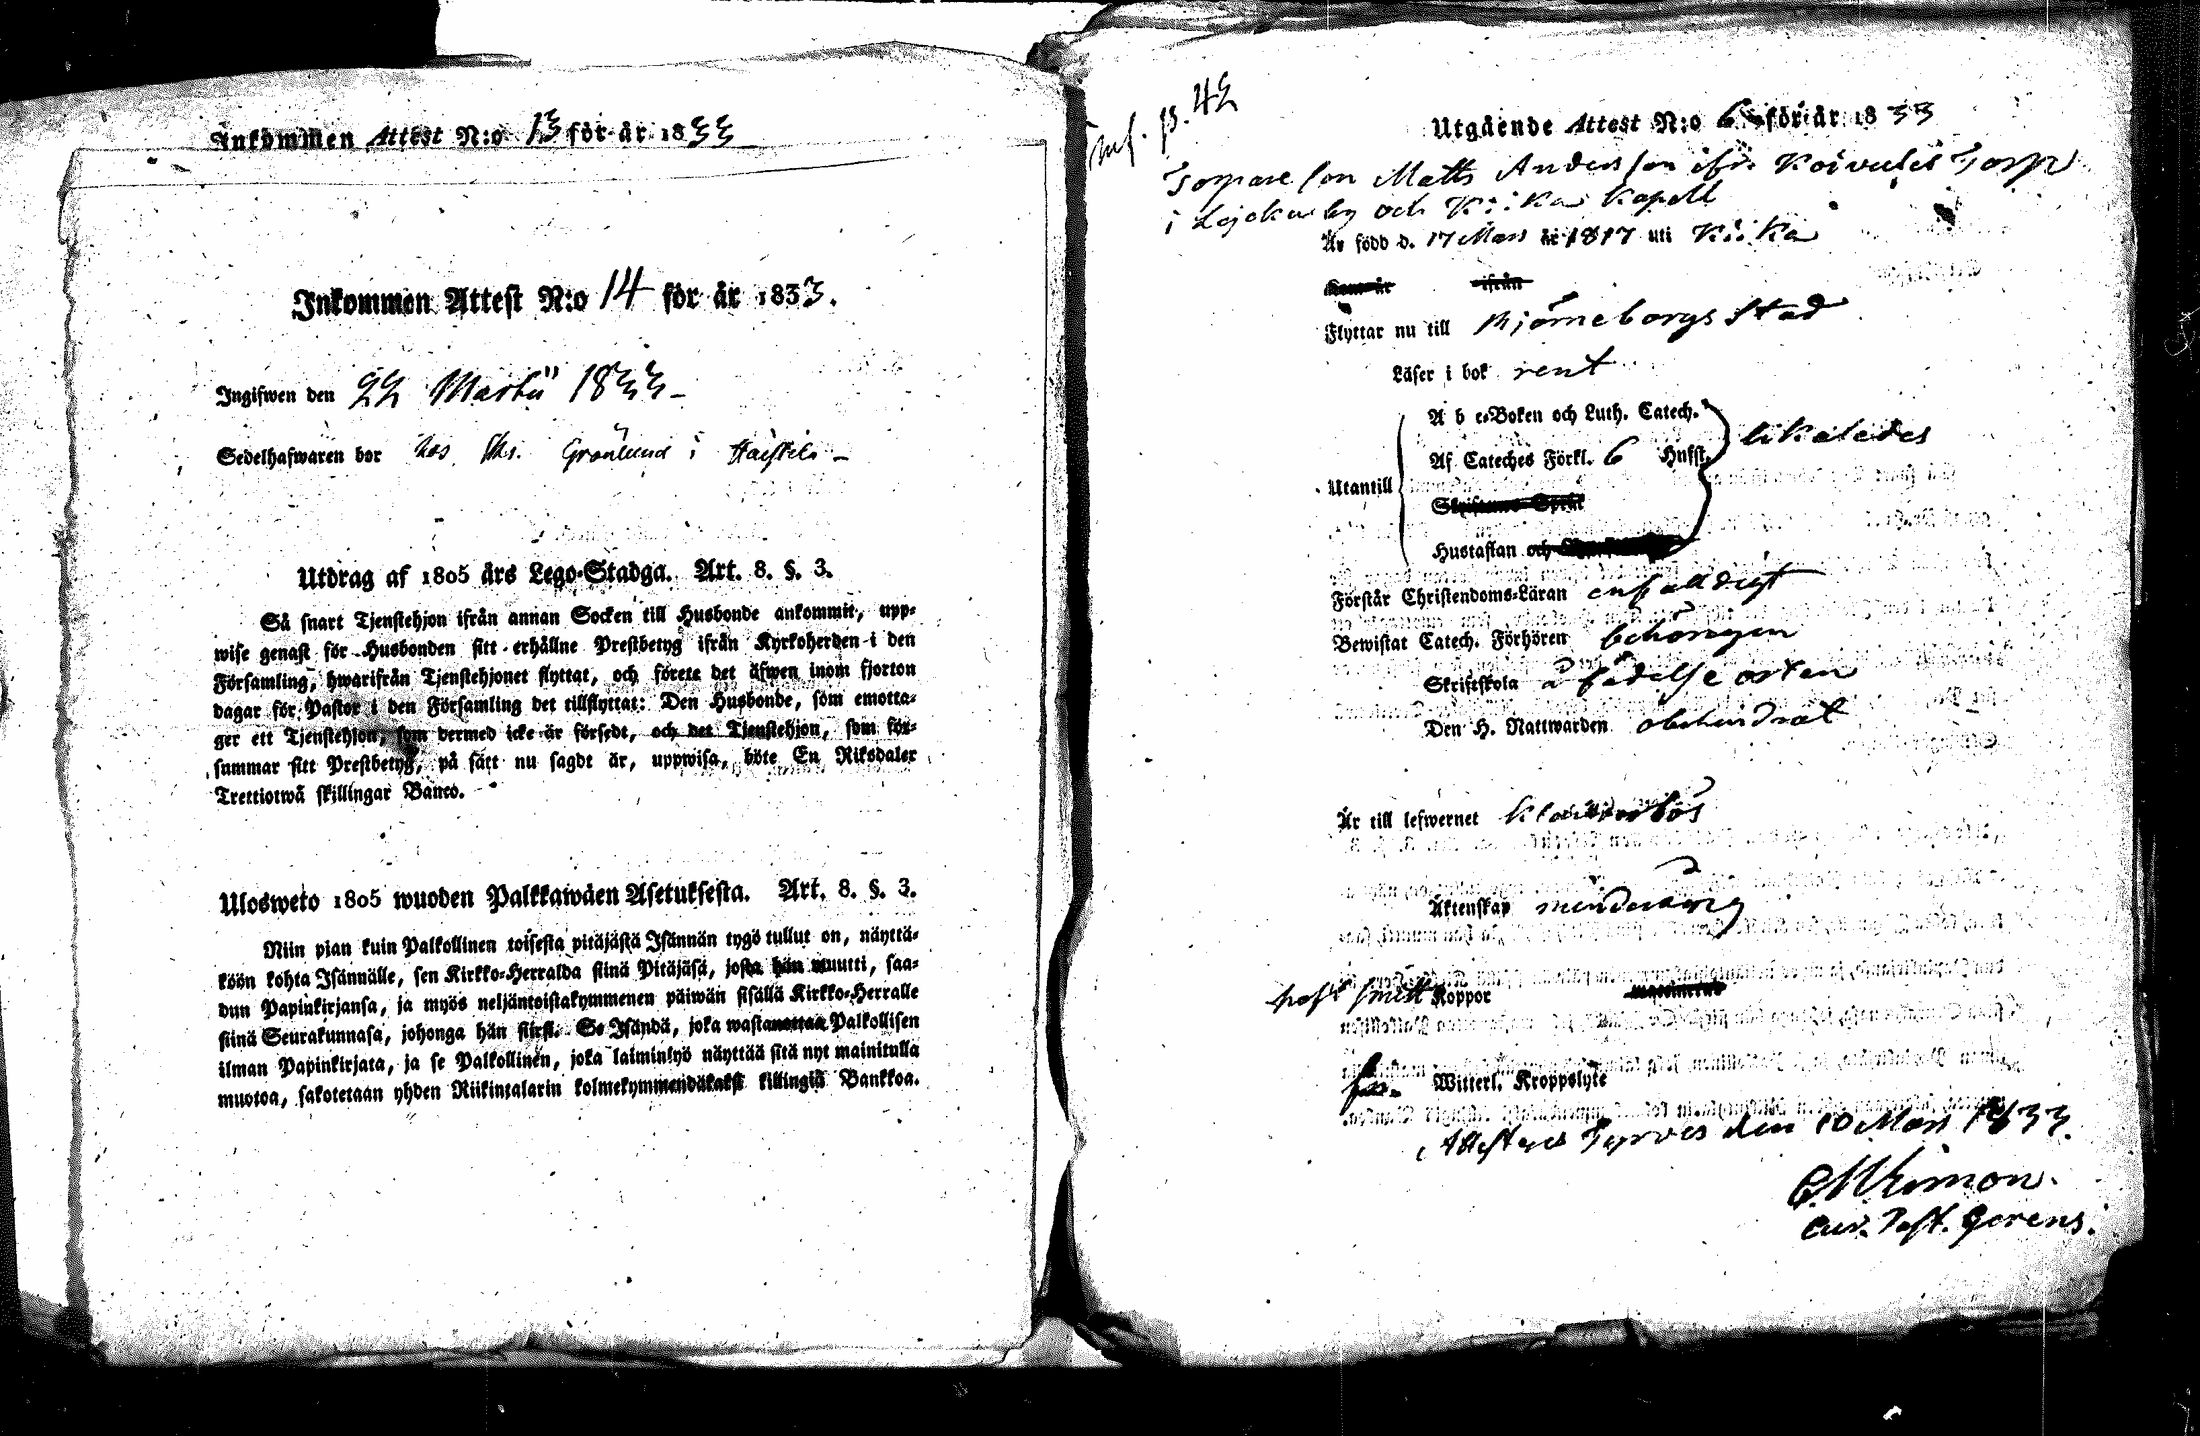 Inkommen Attest N:o 13 för år 1833
Inkommen Attest N:o 14 för år 1833.
Ingifwen den 22 Martii 1833 –
Sedelhafwaren bor hos Grönlund i –
Utdrag af 1805 års Lego-Stadga. Art. 8. §. 3.
Så snart Tjenstehjon ifrån annan Socken till Husbonde ankommit, upp-
wise genast för Husbonden sitt erhållne Prestbetyg ifrån Kyrkoherden i den
Församling, hwarifrån Tjenstehjonet flyttat, och förete det äfwen inom fjorton
dagar för Pastor i den Församling det tillflyttat: Den Husbonde, som emotta-
ger ett Tjenstehjon, som dermed icke är försedt, och det Tjenstehjon, som för-
summar sitt Prestbetyg, på sätt nu sagdt är, uppwisa, böte En Riksdaler
Trettiotwå skillingar Banco.
Ulosweto 1805 wuoden Palkkawäen Asetuksesta. Art. 8. §. 3.
Niin pian kuin Palkollinen toisesta pitäjästä Isännän tygö tullut on, näyttä-
köön kohta Isännälle, sen Kirkko-Herralda siinä Pitäjäsä, josta hän muutti, saa-
dun Papinkirjansa, ja myös neljäntoistakymmenen päiwän sisällä Kirkko-Herralle
siinä Seurakunnasa, johonga hän siirsi. Se Isändä, joka wastanottaa Palkollisen
ilman Papinkirjata, ja se Palkollinen, joka laiminlyö näyttää sitä nyt mainitulla
muotoa, sakotetaan yhden Riikintalarin kolmekymmendäkaksi killingiä Bankkoa.
Inf. p. 42
Utgående Attest N:o 6 för år 1833
Torpare son Matts Andersson ifr. Koivulis Torp
i by och Kiika Kapell
Är född d. 17 Mars år 1817 uti Kiika
Kom år ifrån
Flyttar nu till Björneborgs stad
Läser i bok rent
A b c-Boken och Luth. Catech.
Af Cateches Förkl. 6 Hufst. likaledes
Utantill
Skriftenes Språk
Hustaflan och
Förstår Christendoms-Läran enfaldigt
Bewistat Catech. Förhören behörigen
Skriftskola å födelse orten
Den H. Nattwarden obehindrat
Är till lefwernet klanderlös
Äktenskap minderårig
haft smitt Koppor vaccinerad
fri. Witterl. Kroppslyte
Attesteras Tyrvis den 10 Mars 1833.
Past. Gerens.